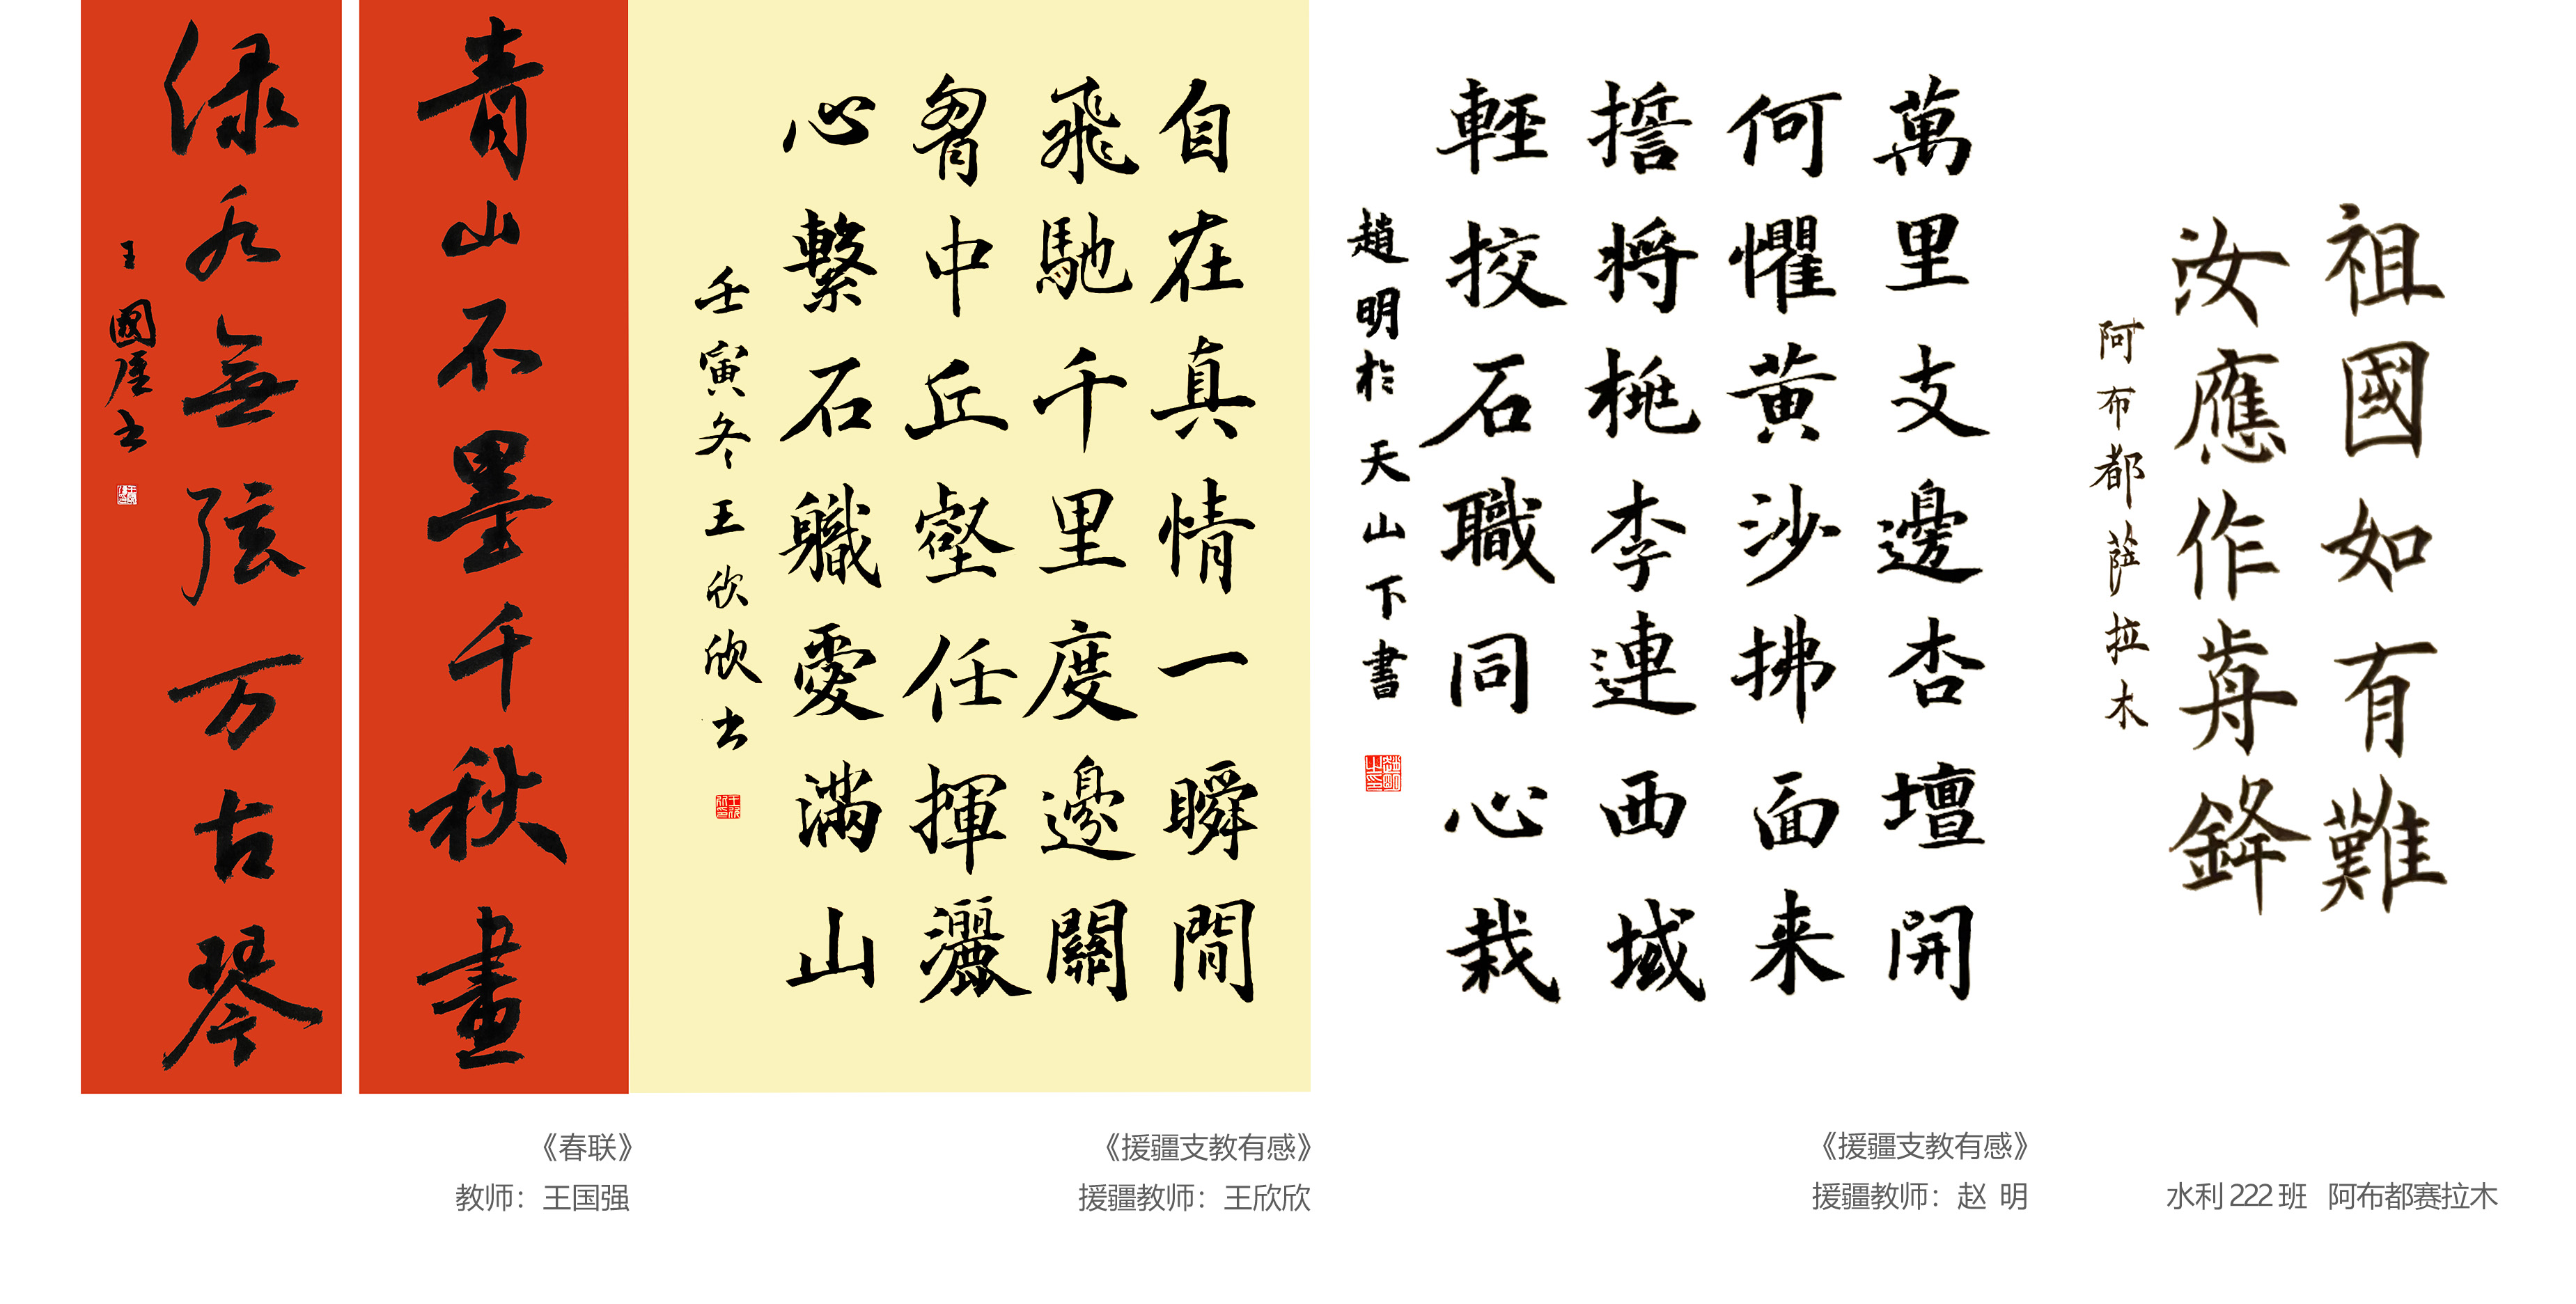 青山不墨千秋畫
绿水無弦万古琴
王國强书
《春联》
教师：王国强
自在真情一瞬間
飛馳千里度邊關
胷中丘壑任揮灑
心繫石軄愛滿山
壬寅冬王欣欣书
《援疆支教有感》
援疆教师：王欣欣
萬里支邊杏壇開
何懼黄沙拂面来
誓将桃李連西域
輕挍石職同心栽
趙明於天山下書
《援疆支教有感》
援疆教师：赵 明
祖國如有難
汝應作歬鋒
阿布都萨拉木
水利222班 阿布都赛拉木